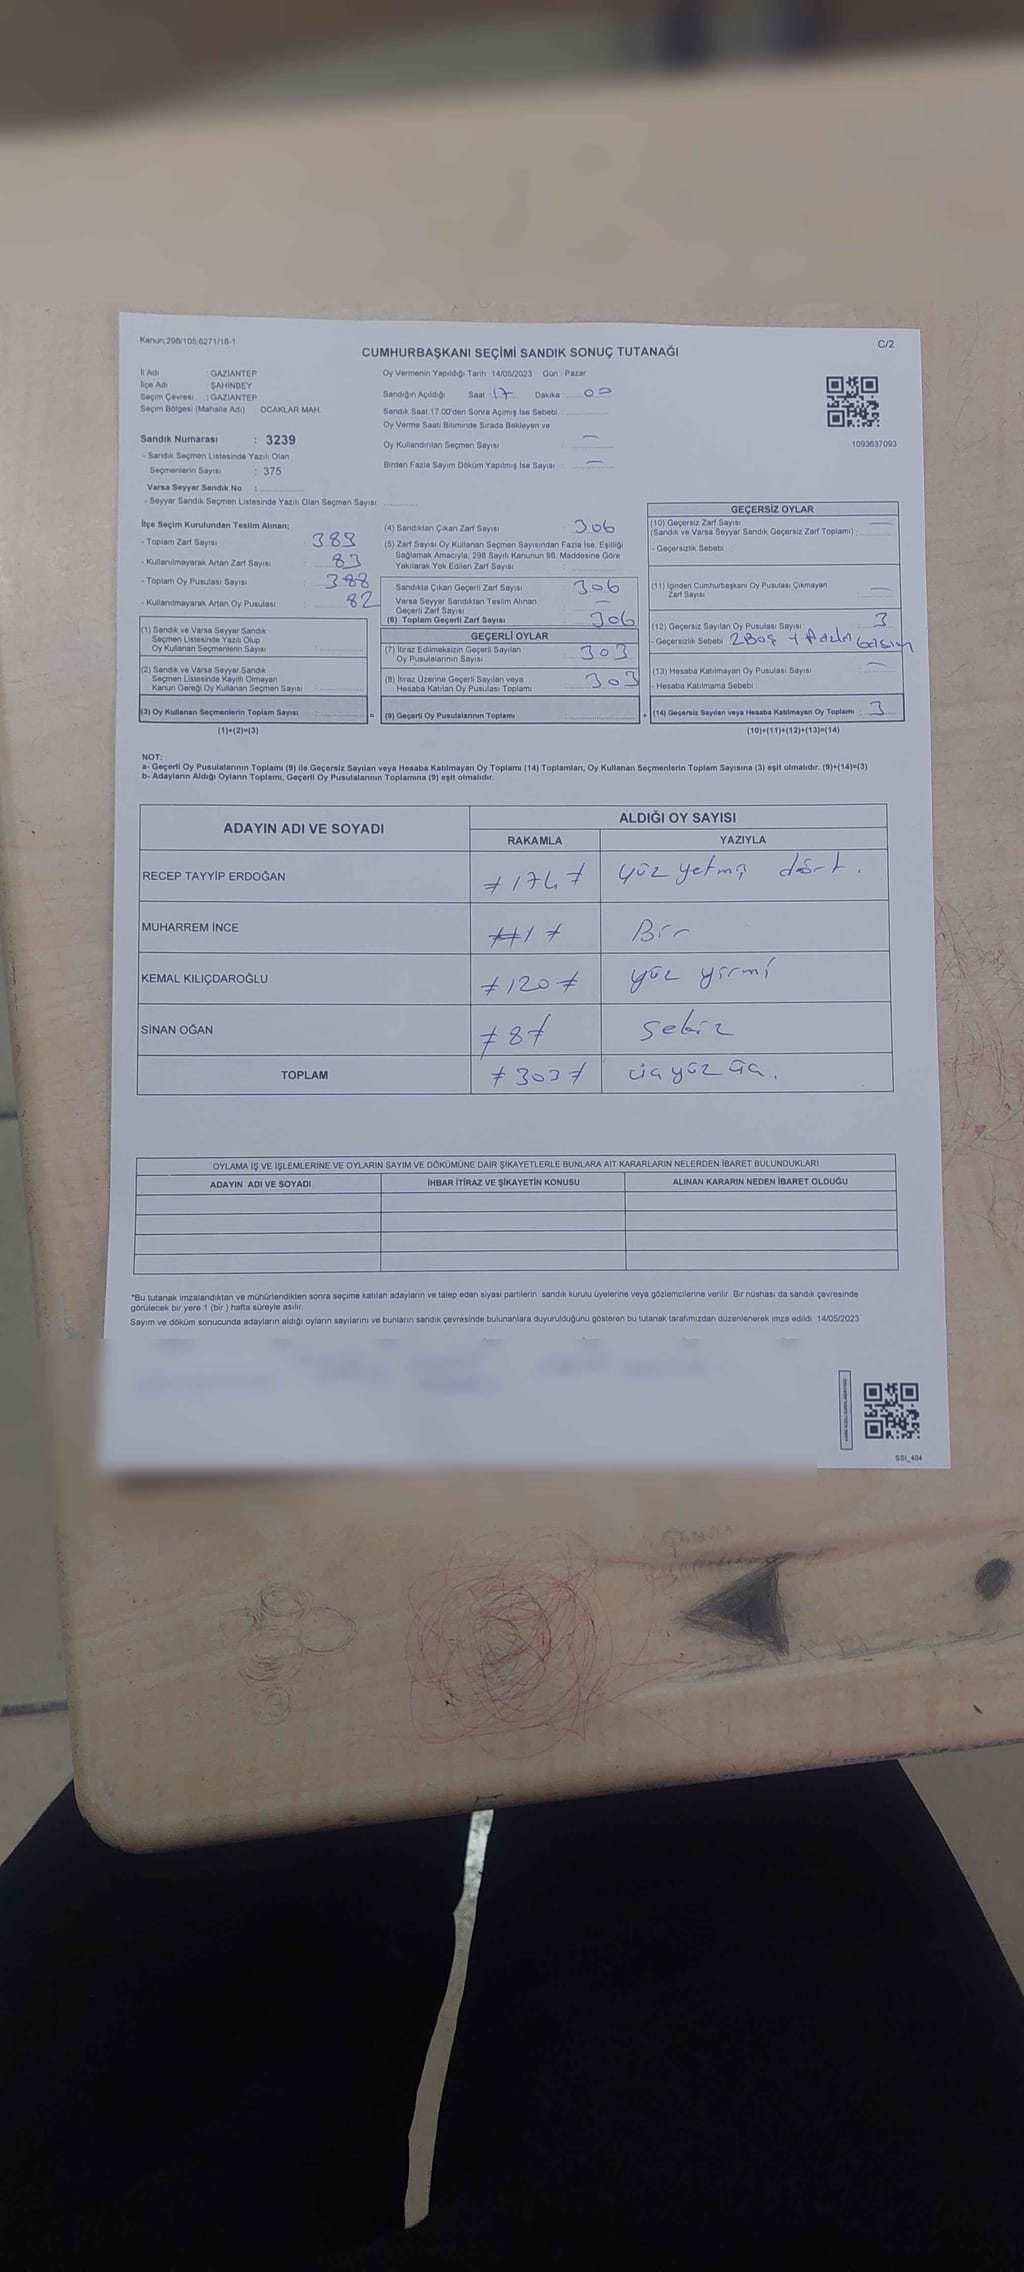 Kanun:298/105 6271/16-1
C/2
CUMHURBAŞKANI SEÇİMİ SANDIK SONUÇ TUTANAĞI
İl Adı : GAZİANTEP
İlçe Adı : ŞAHİNBEY
Seçim Çevresi : GAZİANTEP
Seçim Bölgesi (Mahalle Adı) : OCAKLAR MAH.
Sandık Numarası : 3239
- Sandık Seçmen Listesinde Yazılı Olan
Seçmenlerin Sayısı : 375
Varsa Seyyar Sandık No :
- Seyyar Sandık Seçmen Listesinde Yazılı Olan Seçmen Sayısı:
Oy Vermenin Yapıldığı Tarih : 14/05/2023 Gün : Pazar
Sandığın Açıldığı Saat : 17 Dakika : 00
Sandık Saat 17.00'den Sonra Açımış İse Sebebi :
Oy Verme Saati Bitiminde Sırada Bekleyen ve
Oy Kullandırılan Seçmen Sayısı : —
Birden Fazla Sayım Döküm Yapılmış İse Sayısı : —
1093637093
İlçe Seçim Kurulundan Teslim Alınan;
- Toplam Zarf Sayısı : 389
- Kullanılmayarak Artan Zarf Sayısı : 83
- Toplam Oy Pusulası Sayısı : 388
- Kullanılmayarak Artan Oy Pusulası : 82
(1) Sandık ve Varsa Seyyar Sandık
Seçmen Listesinde Yazılı Olup
Oy Kullanan Seçmenlerin Sayısı :
(2) Sandık ve Varsa Seyyar Sandık
Seçmen Listesinde Kayıtlı Olmayan
Kanun Gereği Oy Kullanan Seçmen Sayısı :
(3) Oy Kullanan Seçmenlerin Toplam Sayısı :
(1)+(2)=(3)
=
(4) Sandıktan Çıkan Zarf Sayısı : 306
(5) Zarf Sayısı Oy Kullanan Seçmen Sayısından Fazla İse, Eşitliği
Sağlamak Amacıyla, 298 Sayılı Kanunun 98. Maddesine Göre
Yakılarak Yok Edilen Zarf Sayısı :
Sandıkta Çıkan Geçerli Zarf Sayısı : 306
Varsa Seyyar Sandıktan Teslim Alınan
Geçerli Zarf Sayısı : —
(6) Toplam Geçerli Zarf Sayısı : 306
GEÇERLİ OYLAR
(7) İtiraz Edilmeksizin Geçerli Sayılan
Oy Pusulalarının Sayısı : 303
(8) İtiraz Üzerine Geçerli Sayılan veya
Hesaba Katılan Oy Pusulası Toplamı : 303
(9) Geçerli Oy Pusulalarının Toplamı :
+
GEÇERSİZ OYLAR
(10) Geçersiz Zarf Sayısı
(Sandık ve Varsa Seyyar Sandık Geçersiz Zarf Toplamı) : —
- Geçersizlik Sebebi :
(11) İçinden Cumhurbaşkanı Oy Pusulası Çıkmayan
Zarf Sayısı : —
(12) Geçersiz Sayılan Oy Pusulası Sayısı : 3
- Geçersizlik Sebebi : 2 Boş
(13) Hesaba Katılmayan Oy Pusulası Sayısı : —
- Hesaba Katılmama Sebebi :
(14) Geçersiz Sayılan veya Hesaba Katılmayan Oy Toplamı : 3
(10)+(11)+(12)+(13)=(14)
NOT:
a- Geçerli Oy Pusulalarının Toplamı (9) ile Geçersiz Sayılan veya Hesaba Katılmayan Oy Toplamı (14) Toplamları, Oy Kullanan Seçmenlerin Toplam Sayısına (3) eşit olmalıdır. (9)+(14)=(3)
b- Adayların Aldığı Oyların Toplamı, Geçerli Oy Pusulalarının Toplamına (9) eşit olmalıdır.
ADAYIN ADI VE SOYADI
ALDIĞI OY SAYISI
RAKAMLA YAZIYLA
RECEP TAYYİP ERDOĞAN ≠174≠ yüz yetmiş dört.
MUHARREM İNCE ≠1≠ Bir
KEMAL KILIÇDAROĞLU ≠120≠ yüz yirmi
SİNAN OĞAN ≠8≠ sekiz
TOPLAM ≠303≠ üçyüz üç.
OYLAMA İŞ VE İŞLEMLERİNE VE OYLARIN SAYIM VE DÖKÜMÜNE DAİR ŞİKAYETLERLE BUNLARA AİT KARARLARIN NELERDEN İBARET BULUNDUKLARI
ADAYIN ADI VE SOYADI İHBAR İTİRAZ VE ŞİKAYETİN KONUSU ALINAN KARARIN NEDEN İBARET OLDUĞU
*Bu tutanak imzalandıktan ve mühürlendikten sonra seçime katılan adayların ve talep eden siyasi partilerin sandık kurulu üyelerine veya gözlemcilerine verilir. Bir nüshası da sandık çevresinde
görülecek bir yere 1 (bir ) hafta süreyle asılır.
Sayım ve döküm sonucunda adayların aldığı oyların sayılarını ve bunların sandık çevresinde bulunanlara duyurulduğunu gösteren bu tutanak tarafımızdan düzenlenerek imza edildi. 14/05/2023
SSI_404